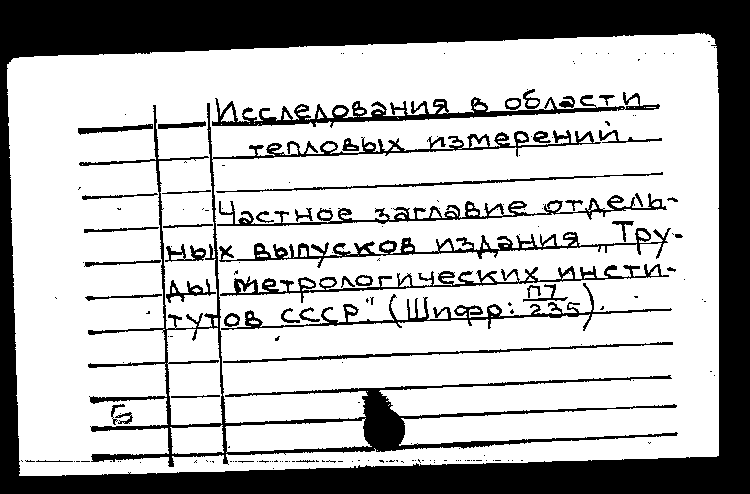 Исследования в области
тепловых измерений.
Частное заглавие отдель-
ных выпусков издания „Тру-
ды метрологических инсти-
тутов СССР." (Шифр: П7/235).
Б